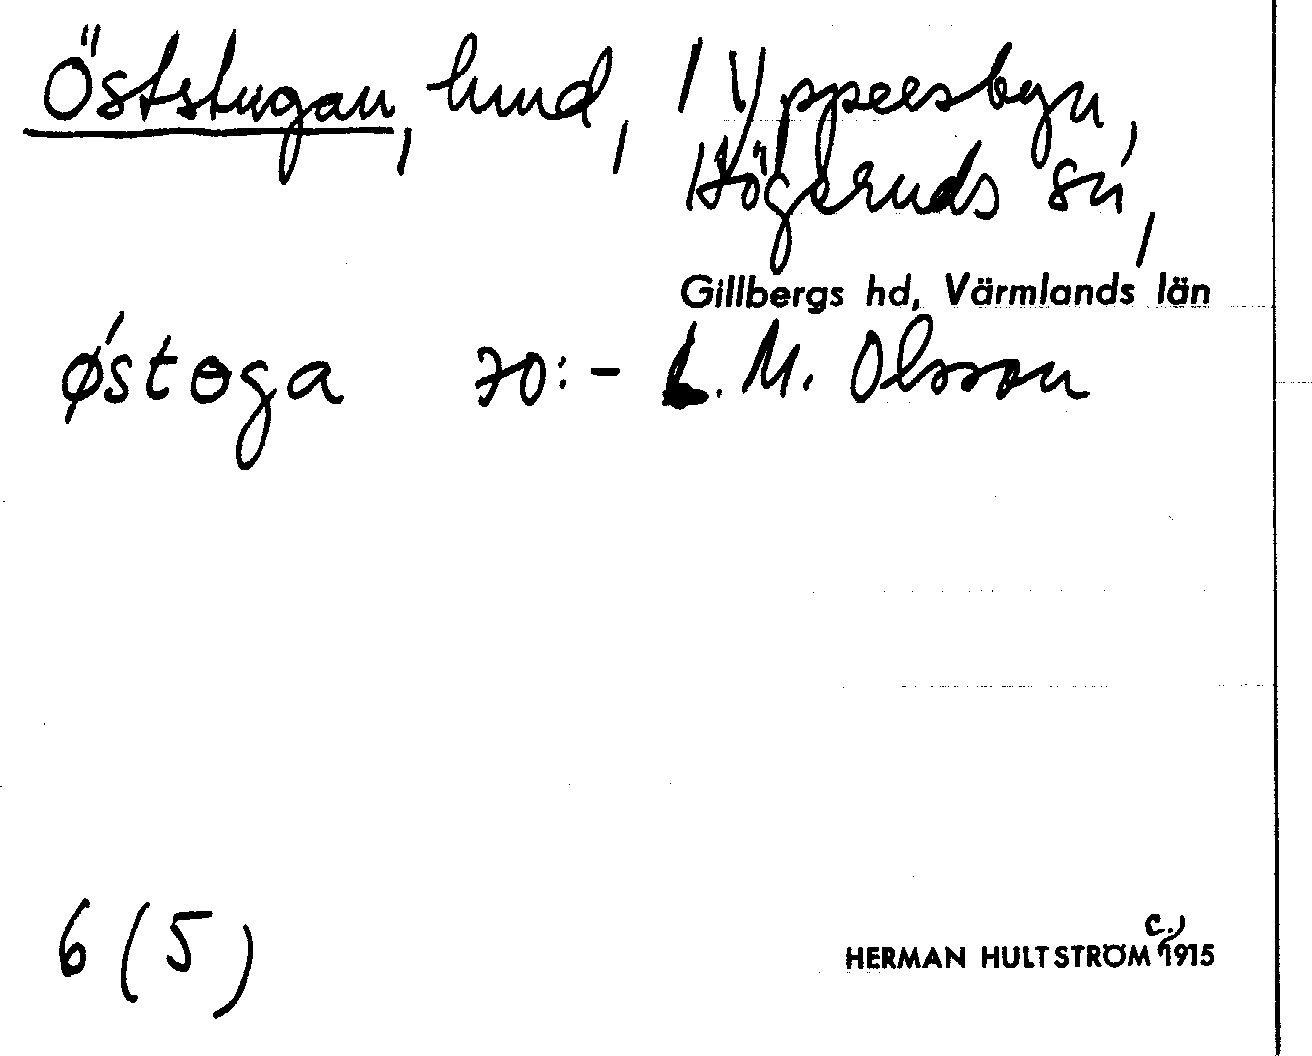 Öststugan, hmd, i Yppersbyn,
Högeruds sn,
Gillbergs hd, Värmlands län
østoga 70:- L. M. Olsson
6 (5)
HERMAN HULTSTRÖM c. 1915